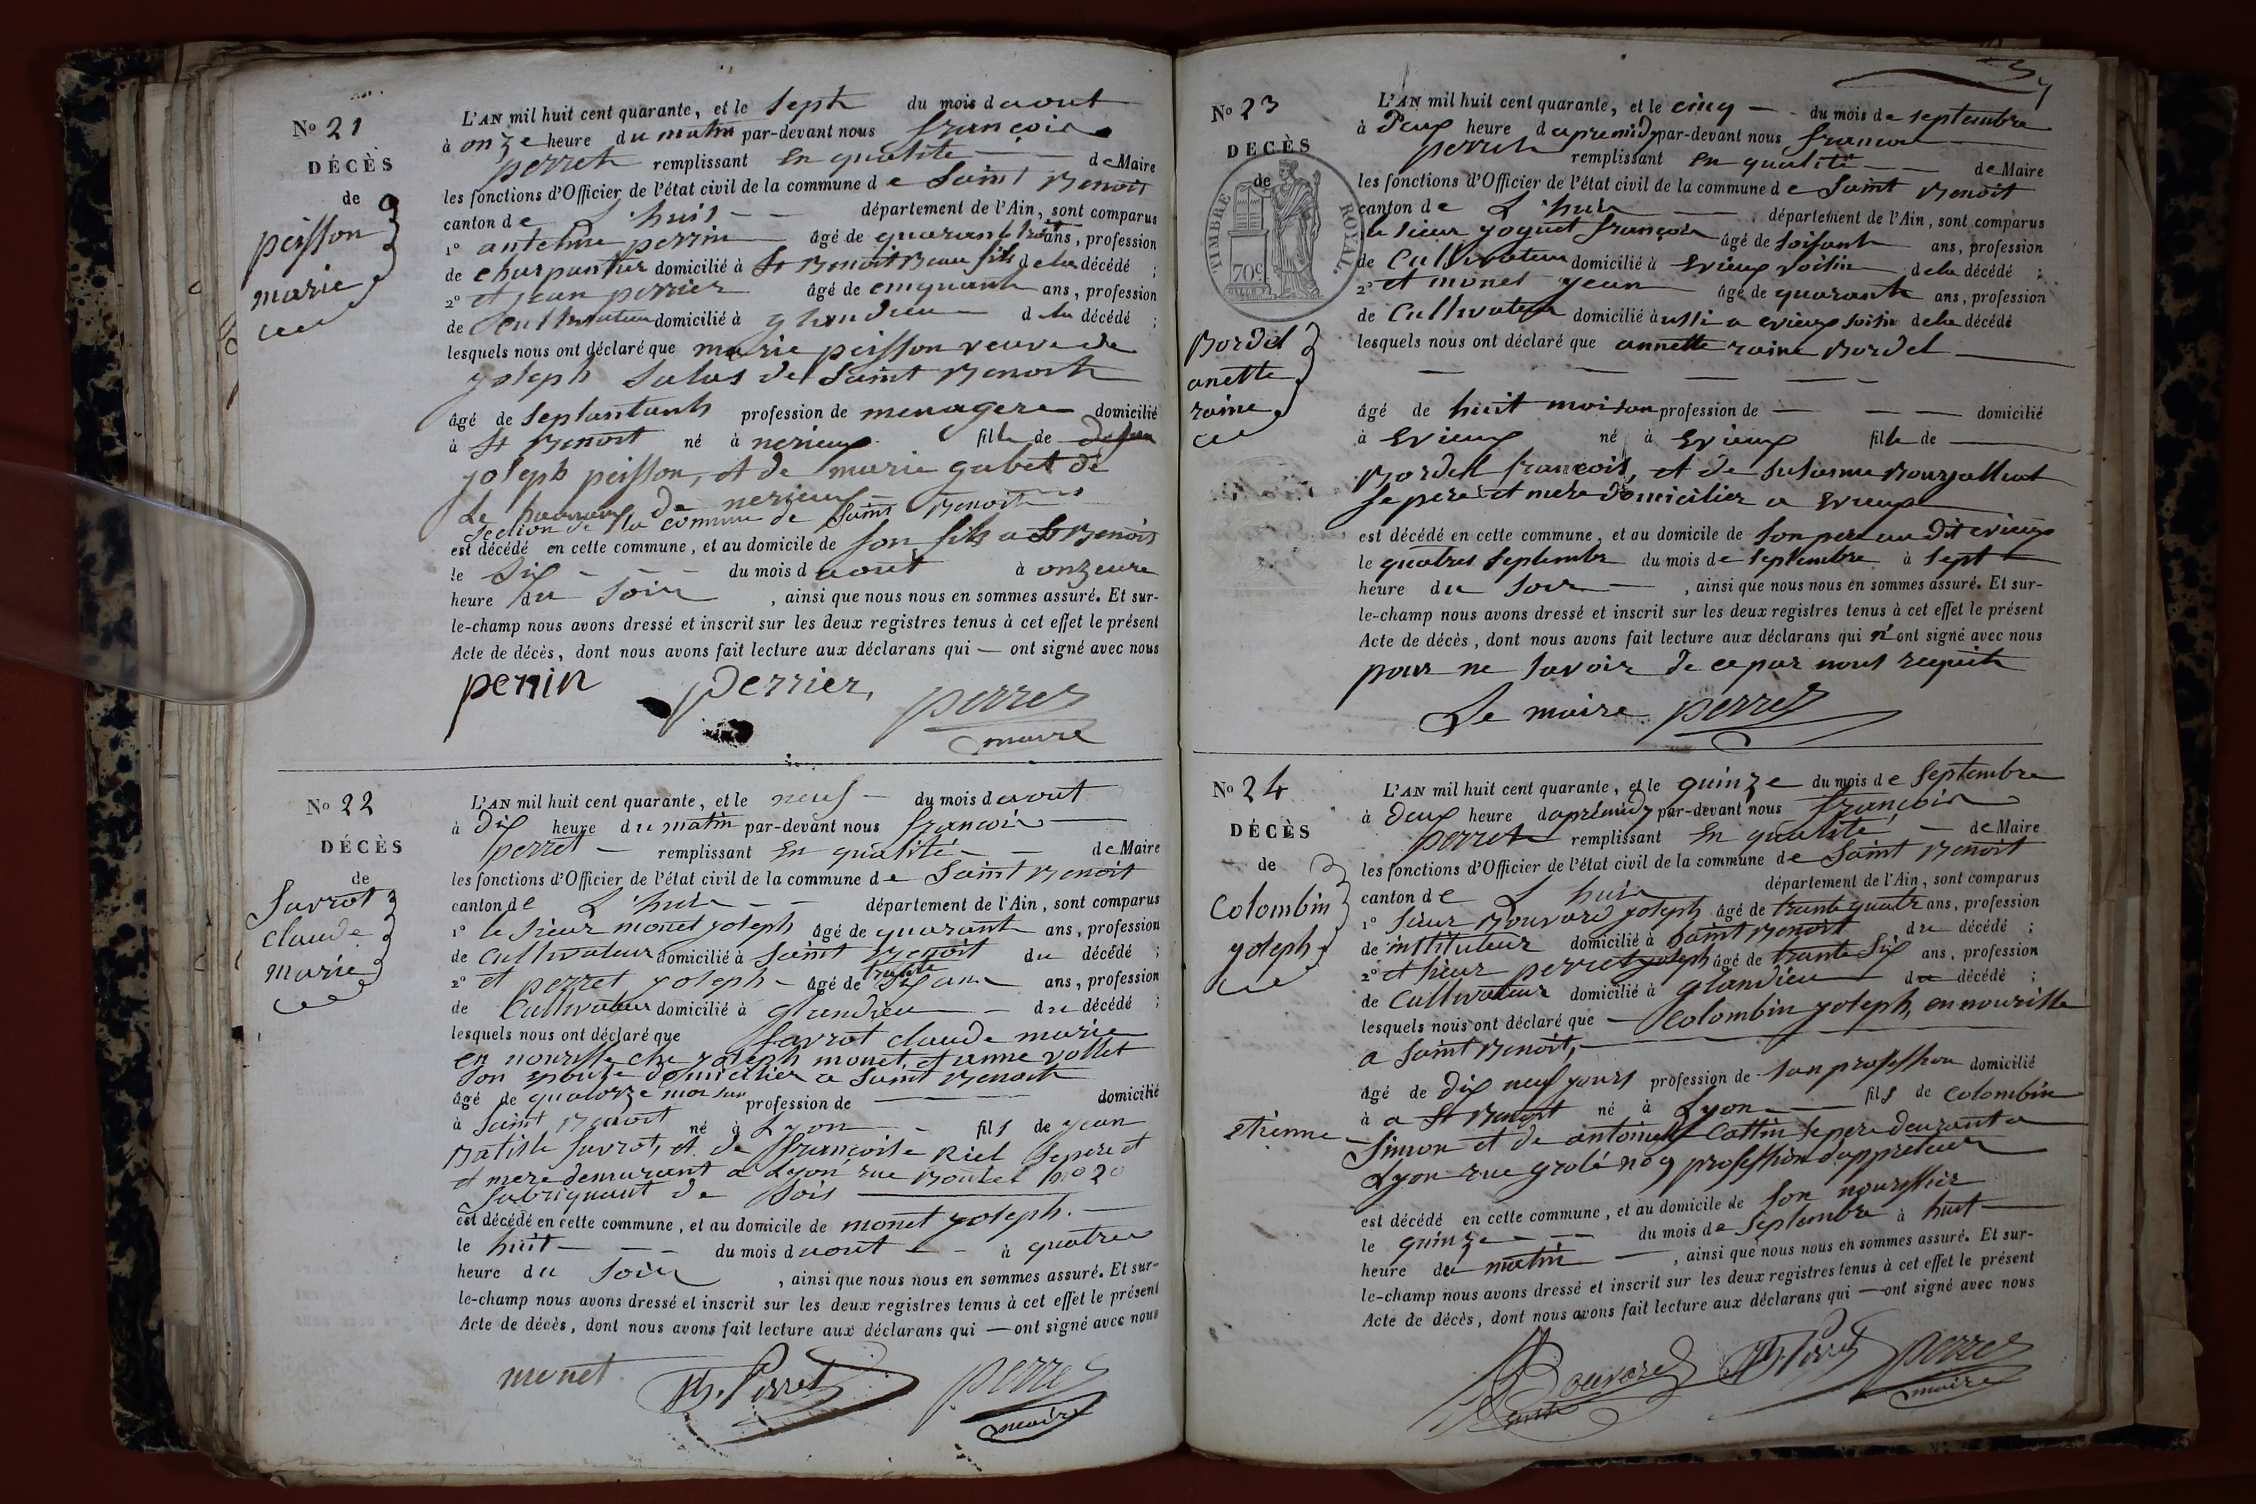 N° 21
DÉCÈS
de
peisson
marie
L'AN mil huit cent quarante, et le sept du mois d aout
à onze heure du matin par-devant nous françois
perret remplissant en qualité de Maire
les fonctions d'Officier de l'état civil de la commune de Saint Benoit
canton de L'huis département de l'Ain, sont comparus
1° antelme perrin âgé de quarante trois ans, profession
de charpantier domicilié à St Benoit Beau fils de la décédé ;
2° et jean perrier âgé de cinquante ans, profession
de Cultivateur domicilié à glandieu d la décédé ;
lesquels nous ont déclaré que marie peisson veuve de
joseph Salas de Saint Benoit
âgé de Septantanh profession de menagere domicilié
à St Benoit né à nerieux fille de
joseph peisson, et de marie gabet de
de nerieux
Section de la commune de Saint Benoit
est décédé en cette commune, et au domicile de son fils a St Benoit
le six du mois d aout à onzeure
heure du Soir , ainsi que nous nous en sommes assuré. Et sur-
le-champ nous avons dressé et inscrit sur les deux registres tenus à cet effet le présent
Acte de décès, dont nous avons fait lecture aux déclarans qui — ont signé avec nous
perrin perrier perret
maire
N° 22
DÉCÈS
de
Savrot
claude
marie
L'AN mil huit cent quarante, et le neuf du mois d aout
à Dix heure du matin par-devant nous françois
perret remplissant En qualité de Maire
les fonctions d'Officier de l'état civil de la commune de Saint Benoit
canton de L'huis département de l'Ain, sont comparus
1° le Sieur monet joseph âgé de quarante ans, profession
de Cultivateur domicilié à Saint Benoit du décédé ;
2° et perret joseph âgé de trante Six ans ans, profession
de Cultivateur domicilié à glandieu du décédé ;
lesquels nous ont déclaré que Savrot claude marie
en nourisse che joseph monet, et anne vollet
Son epouse domicilier a Saint Benoit
âgé de quatorze mois profession de domicilié
à Saint Benoit né à Lyon fils de jean
Batiste Savrot, et de françoise Riel Se pere et
et mere demurant a Lyon rue Boutet no 20
fabriquant de Sois
est décédé en cette commune, et au domicile de monet joseph.
le huit du mois d aout à quatres
heure du Soir , ainsi que nous nous en sommes assuré. Et sur-
le-champ nous avons dressé et inscrit sur les deux registres tenus à cet effet le présent
Acte de décès, dont nous avons fait lecture aux déclarans qui — ont signé avec nous
monet Jh. Perret perret
maire
N° 23
DÉCÈS
de
TIMBRE ROYAL.
70c
Bordel
anette
raine
L'AN mil huit cent quarante, et le cinq du mois de septembre
à Deux heure d apremidy par-devant nous francois
perret remplissant en qualité de Maire
les fonctions d'Officier de l'état civil de la commune de Saint Benoit
canton de L'huis département de l'Ain, sont comparus
le sieur joguet françois âgé de soisante ans, profession
de Cultivateur domicilié à Evieux voisin de la décédé ;
2° et monet jean âgé de quarante ans, profession
de Cultivateur domicilié àussi a evieux voisin de la décédé
lesquels nous ont déclaré que annette raine Bordel
âgé de huit mois son profession de domicilié
à Evieux né à Evieux fille de
Bordell françois, et de Susanne Bourgalliat
se pere et mere Domicilier a Evieux
est décédé en cette commune, et au domicile de son pere au Dit evieux
le quatres Septembre du mois de septembre à sept
heure du Soir , ainsi que nous nous en sommes assuré. Et sur-
le-champ nous avons dressé et inscrit sur les deux registres tenus à cet effet le présent
Acte de décès, dont nous avons fait lecture aux déclarans qui n'ont signé avec nous
pour ne savoir de ce par nous requit
Le maire perret
N° 24
DÉCÈS
de
Colombin
joseph
étienne
L'AN mil huit cent quarante, et le quinze du mois de Septembre
à deux heure d aprémidy par-devant nous françois
perret remplissant En qualité de Maire
les fonctions d'Officier de l'état civil de la commune de Saint Benoit
canton de L'huis département de l'Ain, sont comparus
1° Sieur Bouvard joseph âgé de trante quatr ans, profession
de instituteur domicilié à Saint Benoit du décédé ;
2° et sieur perret joseph âgé de trante Six ans, profession
de Cultivateur domicilié à glandieu du décédé ;
lesquels nous ont déclaré que Colombin joseph, en nourisse
a Saint Benoit,
âgé de Dix neuf jours profession de san profession domicilié
à a St Benoit né à Lyon fils de Colombin
Simon et de antoinette Cattin Se pere demurant a
Lyon rue grolé no 9 profession d'appreteur
est décédé en cette commune, et au domicile de Son nourissier
le quinze du mois de Septembre à huit
heure du matin , ainsi que nous nous en sommes assuré. Et sur-
le-champ nous avons dressé et inscrit sur les deux registres tenus à cet effet le présent
Acte de décès, dont nous avons fait lecture aux déclarans qui — ont signé avec nous
Bouvard Jh. Perret perret
maire